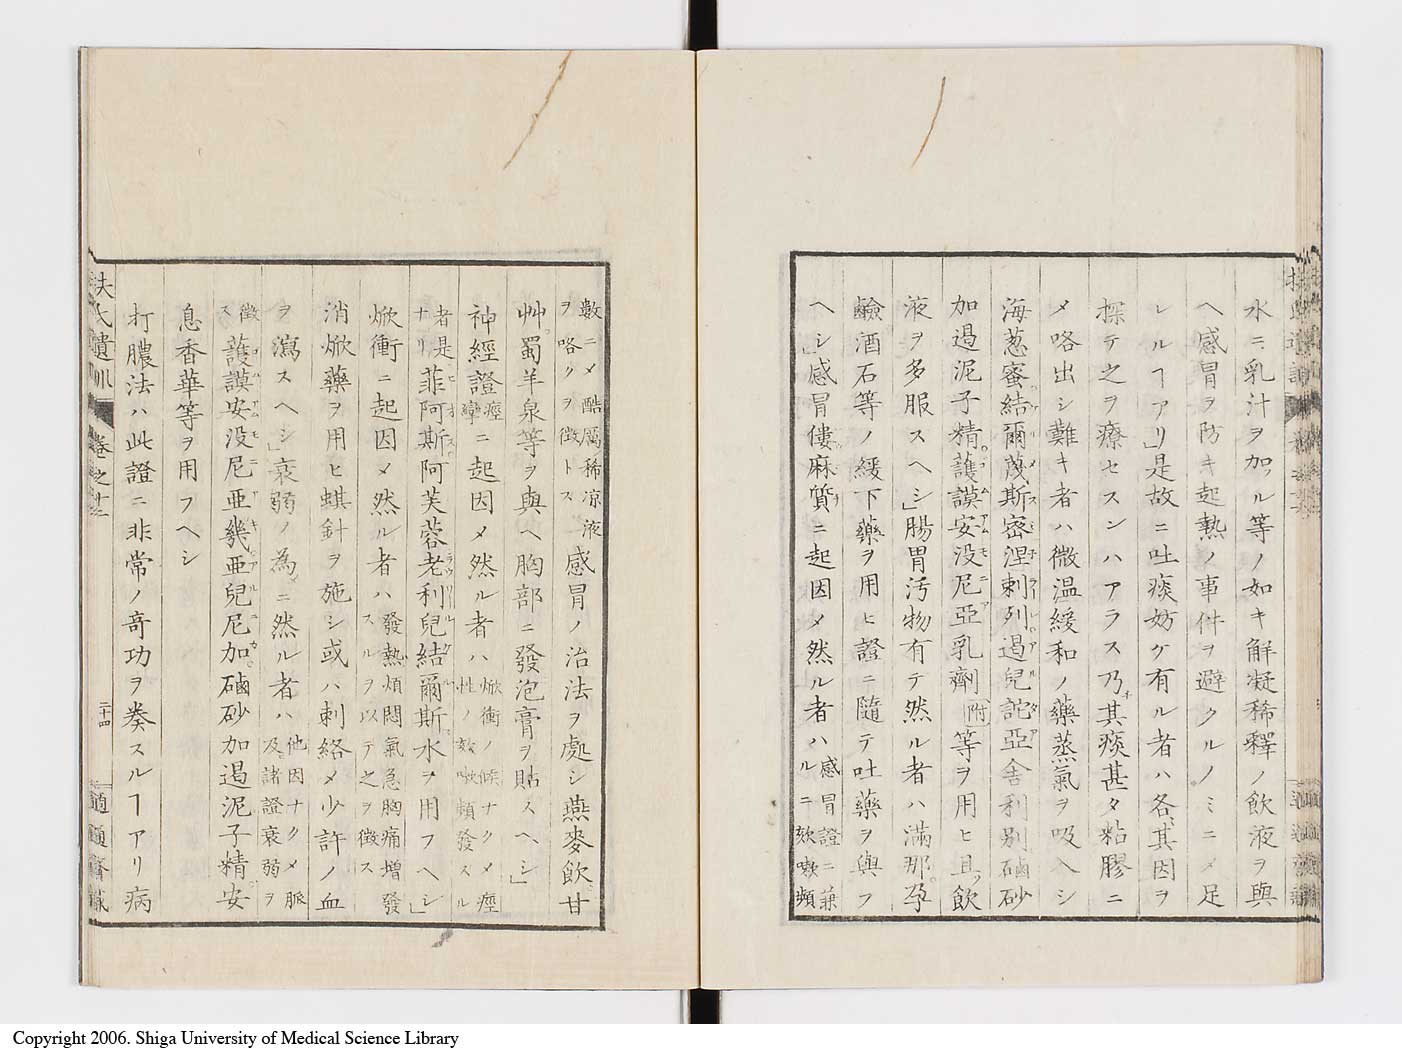 水ニ乳汁ヲ加ル等ノ如キ解凝稀釋ノ飲液ヲ與
ヘ感冒ヲ防キ起熱ノ事件ヲ避クルノミニメ足
レルヿアリ」是故ニ吐痰妨ケ有ル者ハ各其因ヲ
探テ之ヲ療セスンハアラス乃其痰甚タ粘膠ニ
メ咯出シ難キ者ハ微温緩和ノ藥蒸氣ヲ吸入シ
海葱蜜結爾蔑斯密涅刺列遏兒詑亞舍利別磠砂
加遏泥子精護謨安没尼亞乳劑附等ヲ用ヒ且飲
液ヲ多服スヘシ」腸胃汚物有テ然ル者ハ満那孕
鹼酒石等ノ緩下藥ヲ用ヒ證ニ隨テ吐藥ヲ與フ
ヘシ」感冒僂麻質ニ起因メ然ル者ハ感冒證ニ兼ルニ欬嗽頻
數ニメ酷厲稀凉液ヲ咯クヲ徴トス感冒ノ治法ヲ處シ燕麥飲甘
艸蜀羊泉等ヲ與ヘ胸部ニ發泡膏ヲ貼スヘシ」
神經證痙攣ニ起因メ然ル者ハ焮衝ノ候ナクメ痙性ノ欬嗽頻發スル
者是ナリ菲阿斯阿芙蓉老利兒結爾斯水ヲ用フヘシ」
焮衝ニ起因メ然ル者ハ發熱煩悶氣急胸痛増發スルヲ以テ之ヲ徴ス
消焮藥ヲ用ヒ蜞針ヲ施シ或ハ刺絡メ少許ノ血
ヲ瀉スヘシ」衰弱ノ為ニ然ル者ハ他因ナクメ脈及諸證衰弱ヲ
徴ス護謨安没尼亞幾亞兒尼加磠砂加遏泥子精安
息香華等ヲ用フヘシ
打膿法ハ此證ニ非常ノ奇功ヲ奏スルヿアリ病
夫氏遺訓 卷之十二 二十四
Copyright 2006. Shiga University of Medical Science Library